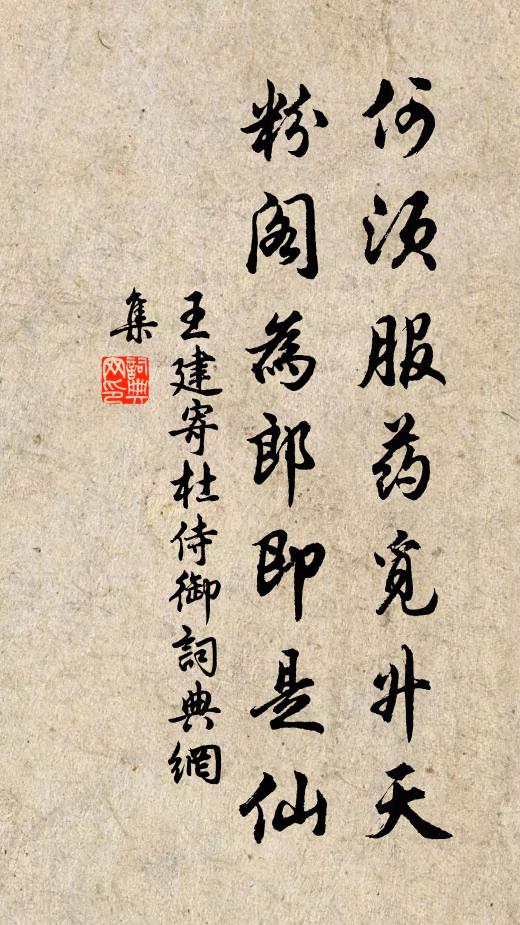 何须服药觅升天
粉阁为郎即是仙
王建寄杜侍御詞典網
集
詞典
网印